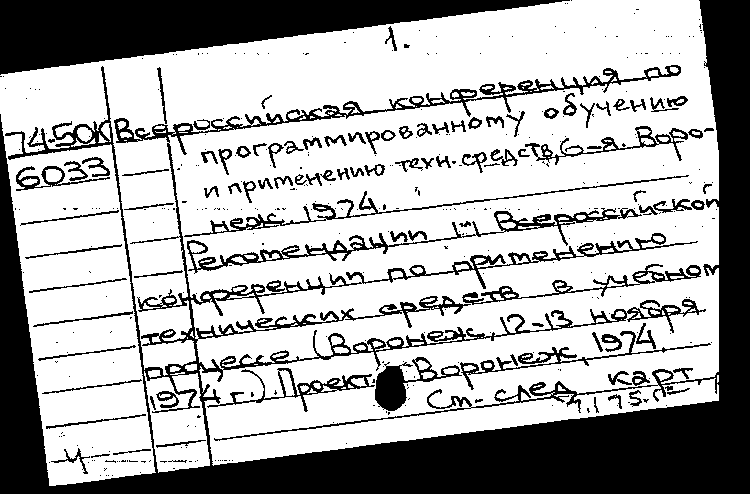 1.
74-50К Всероссийская конференция по
6033 программированному обучению
и применению техн. средств, 6-я. Воро-
неж. 1974.
Рекомендации Всероссийской
конференции по применению
технических средств в учебном
процессе. (Воронеж, 12-13 ноября
1974 г.). Проект. Воронеж, 1974.
См. след. карт.
Ч